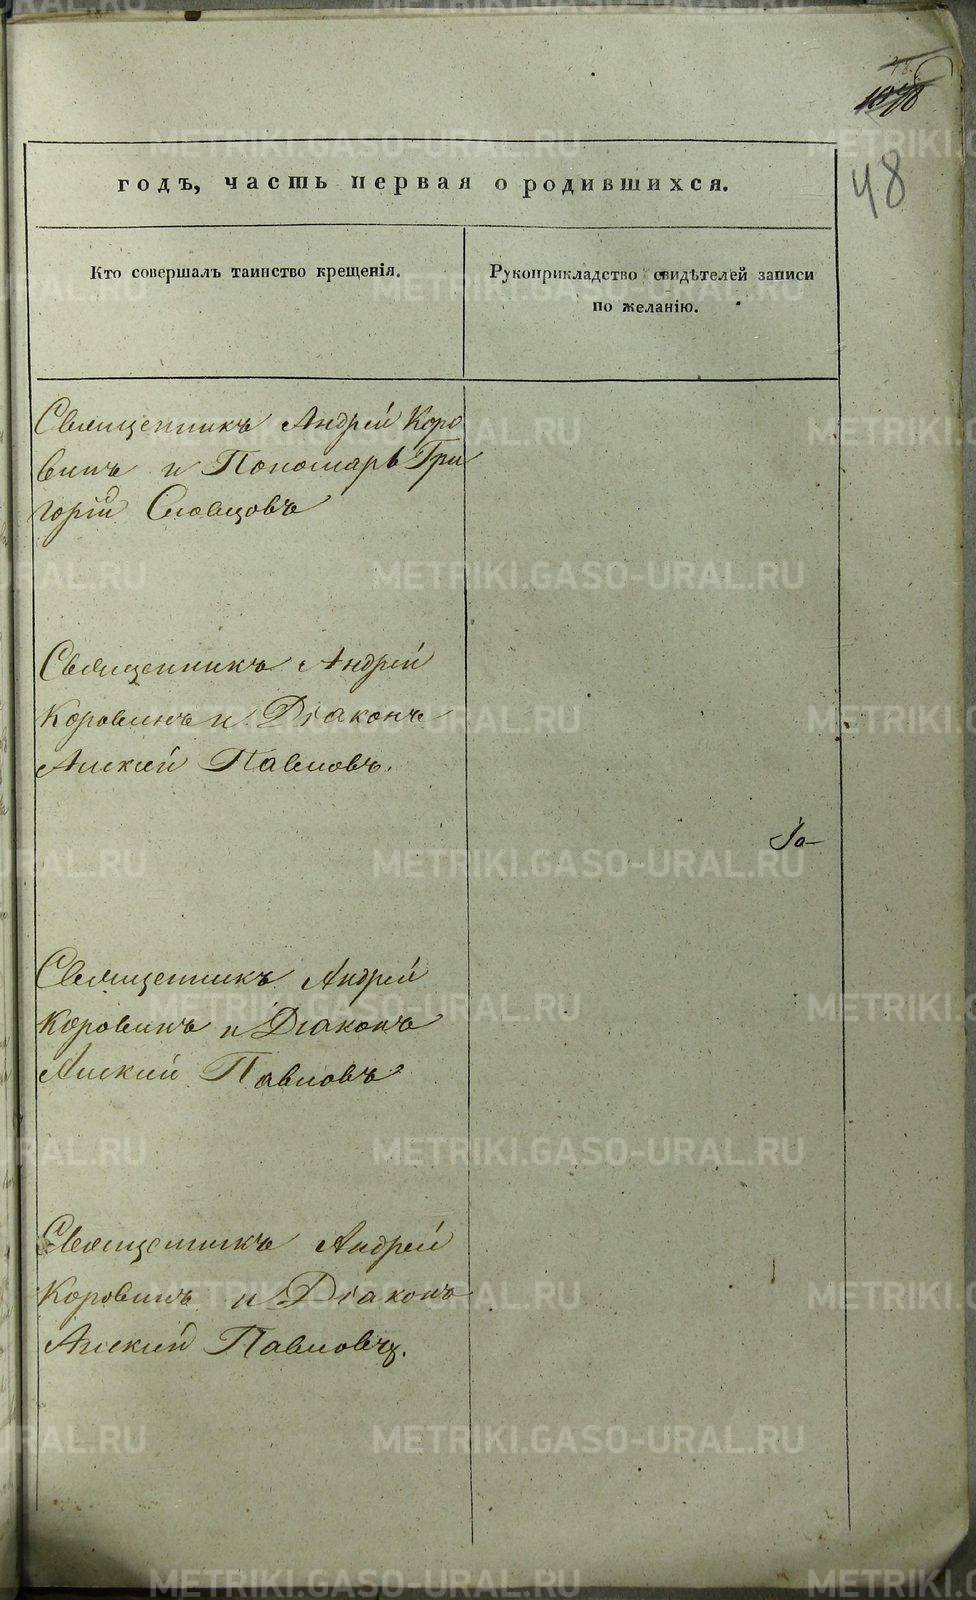 48
годъ, часть первая о родившихся.
Кто совершалъ таинство крещенія.
Рукоприкладство свидѣтелей записи
по желанію.
Священникъ Андрей Коро
винъ и Пономарь Гри
горій Словцовъ
Священникъ Андрей
Коровинъ и Діаконъ
Алексій Павловъ.
Го-
Священникъ Андрей
Коровинъ и Діаконъ
Алексій Павловъ
Священникъ Андрей
Коровинъ и Діаконъ
Алексій Павловъ.
METRIKI.GASO-URAL.RU